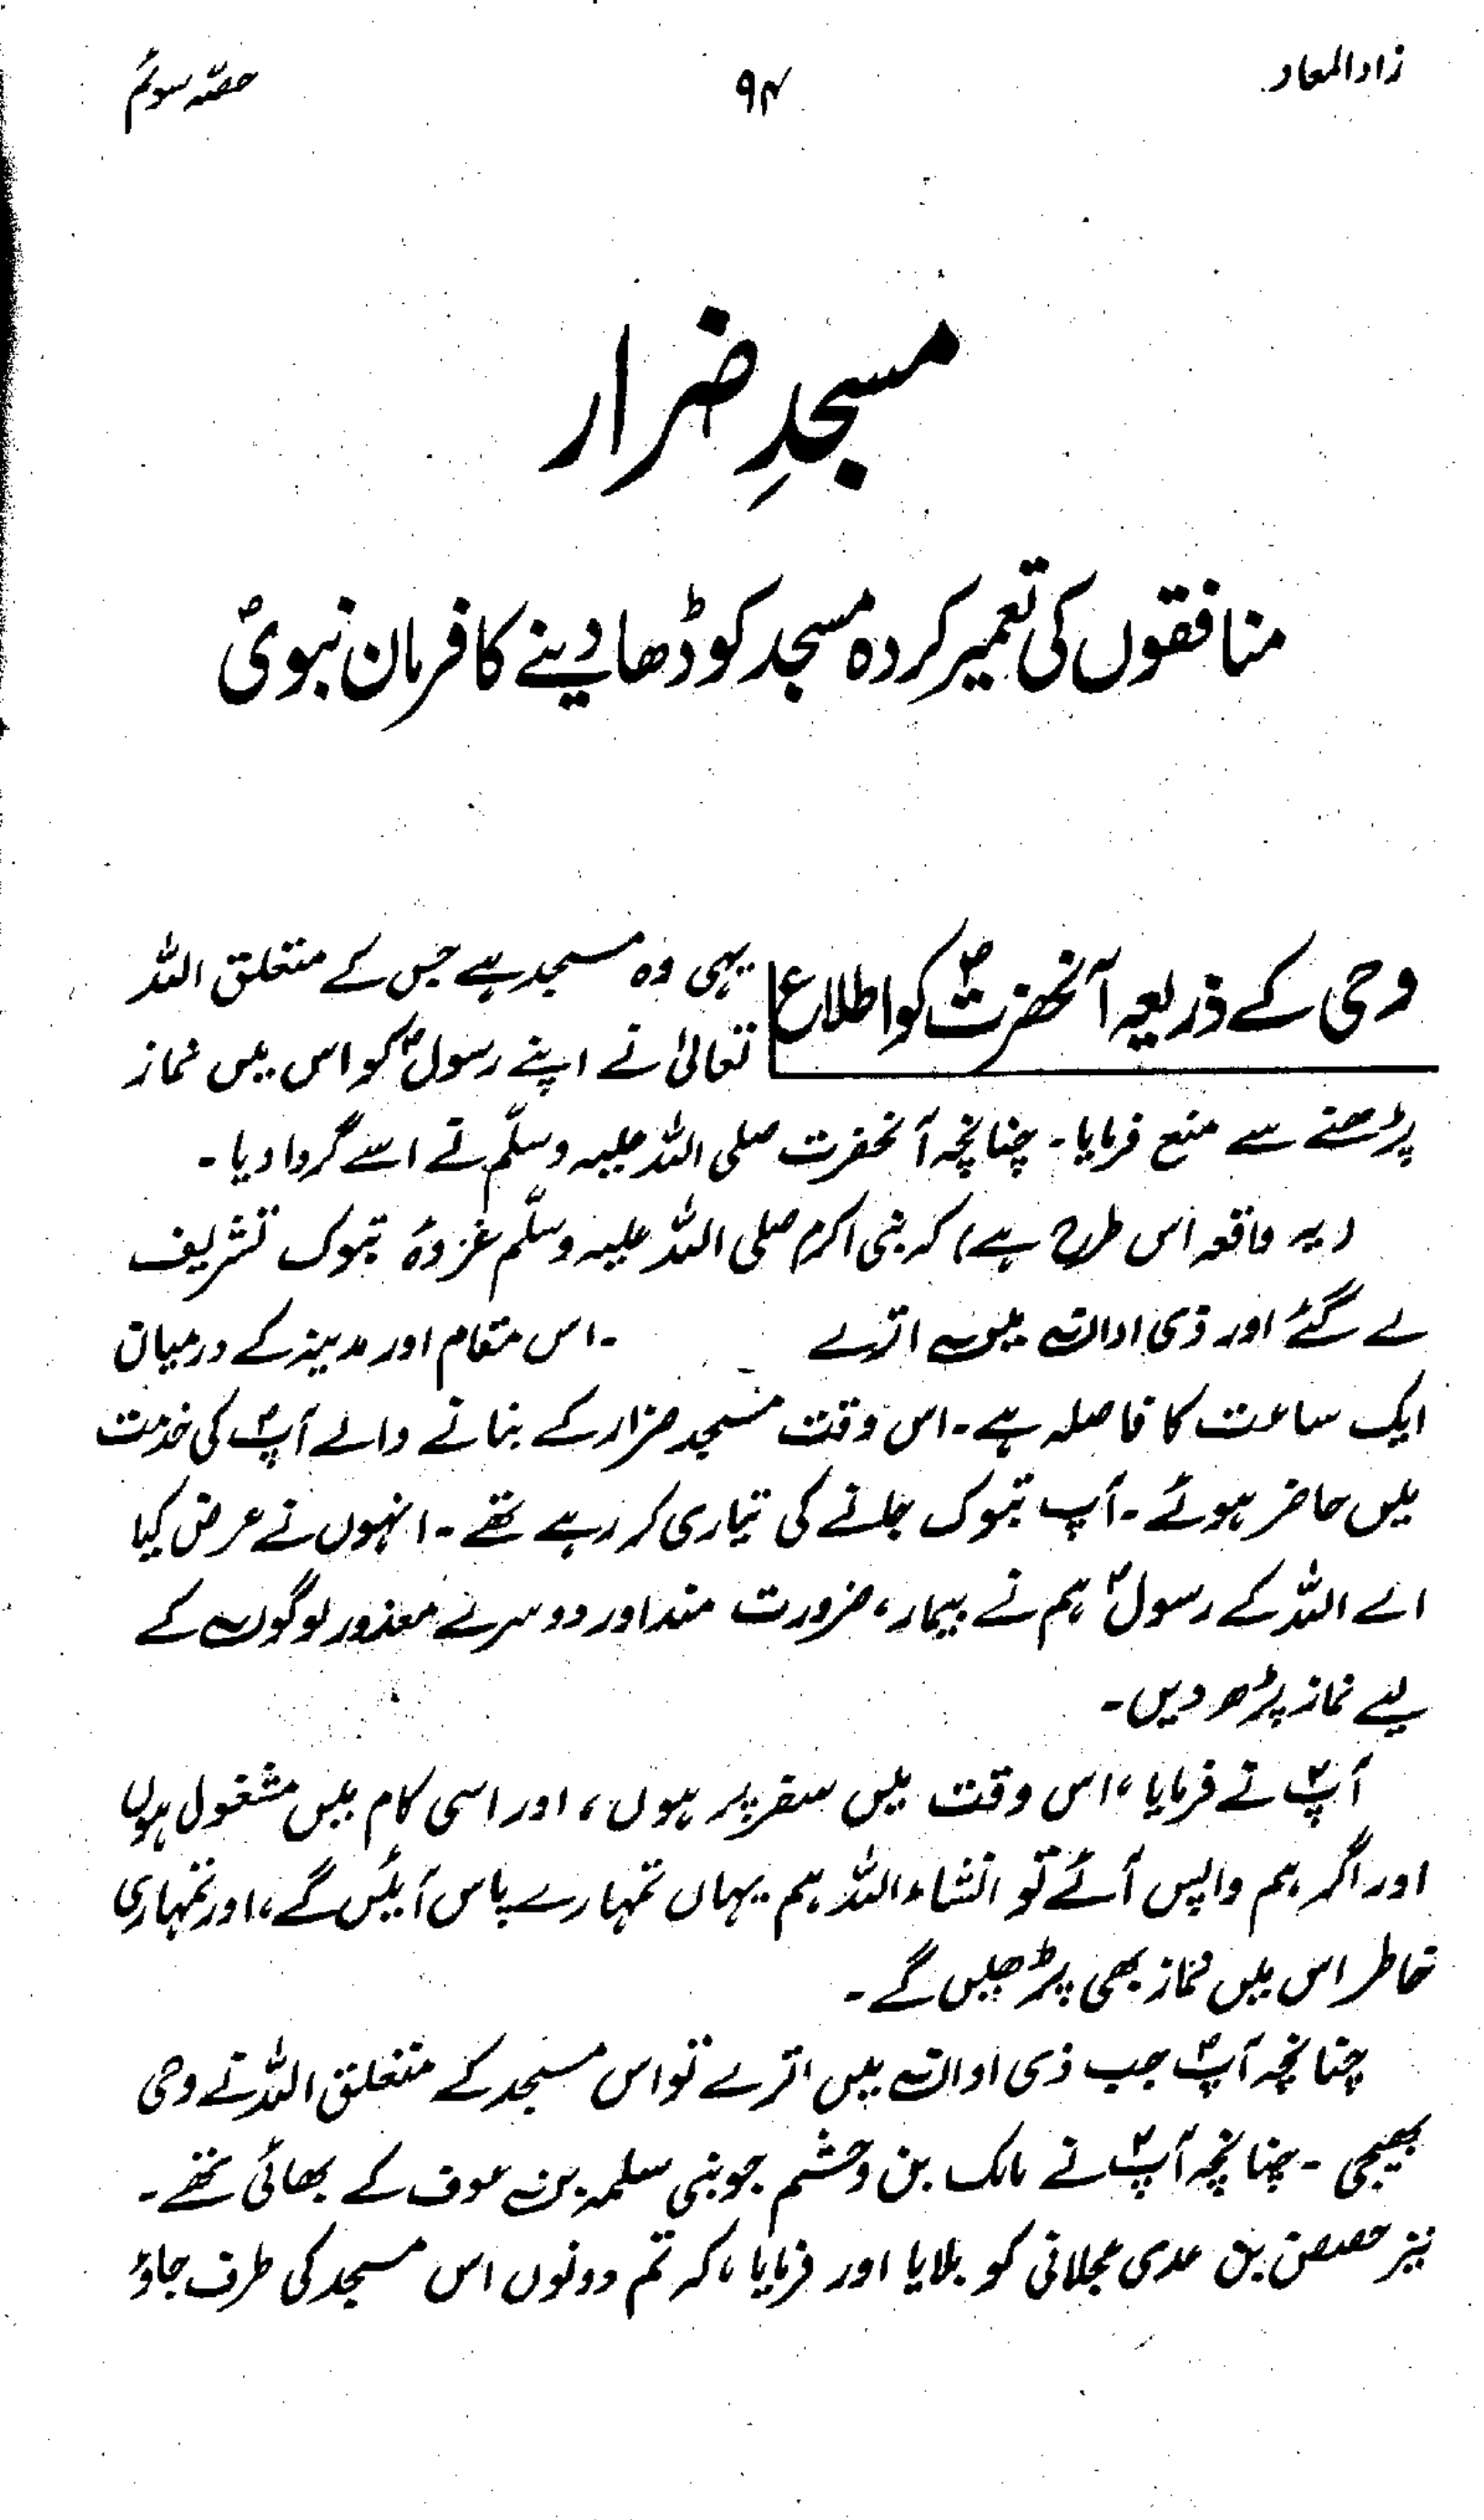 زادالمعاد ۹۴ حصّہ سوئم
مسجدِ ضرار
منافقوں کی تعمیر کردہ مسجد کو ڈھا دینے کا فرمان نبویؐ
وحی کے ذریعہ آنحضرتؐ کو اطلاع
یہی وہ مسجد ہے جس کے متعلق اللہ
تعالیٰ نے اپنے رسولؐ کو اس میں نماز
پڑھنے سے منع فرمایا۔ چنانچہ آنحضرت صلی اللہ علیہ وسلّم نے اسے گروا دیا۔
(یہ واقعہ اس طرح ہے) کہ نبی اکرم صلی اللہ علیہ وسلّم غزوۂ تبوک تشریف
لے گئے اور ذی اوان میں اترے ۔اس مقام اور مدینہ کے درمیان
ایک ساعت کا فاصلہ ہے۔ اس وقت مسجد ضرار کے بنانے والے آپؐ کی خدمت
میں حاضر ہوئے۔ آپ تبوک جانے کی تیاری کر رہے تھے۔ انہوں نے عرض کیا
اے اللہ کے رسولؐ ہم نے بیمار، ضرورت مند اور دوسرے معذور لوگوں کے
لیے نماز پڑھ دیں۔
آپؐ نے فرمایا، اس وقت میں سفر پر ہوں، اور اسی کام میں مشغول ہوں
اور اگر ہم واپس آئے تو انشاء اللہ ہم یہاں تمہارے پاس آئیں گے، اور تمہاری
خاطر اس میں نماز بھی پڑھیں گے۔
چنانچہ آپؐ جب ذی اوان میں اترے تو اس مسجد کے متعلق اللہ نے وحی
بھیجی۔ چنانچہ آپؐ نے مالک بن وخشم جو بنی سلمہ بن عوف کے بھائی تھے۔
نیز حصین بن عدی عجلانی کو بلایا اور فرمایا، کہ تم دونوں اس مسجد کی طرف جاؤ